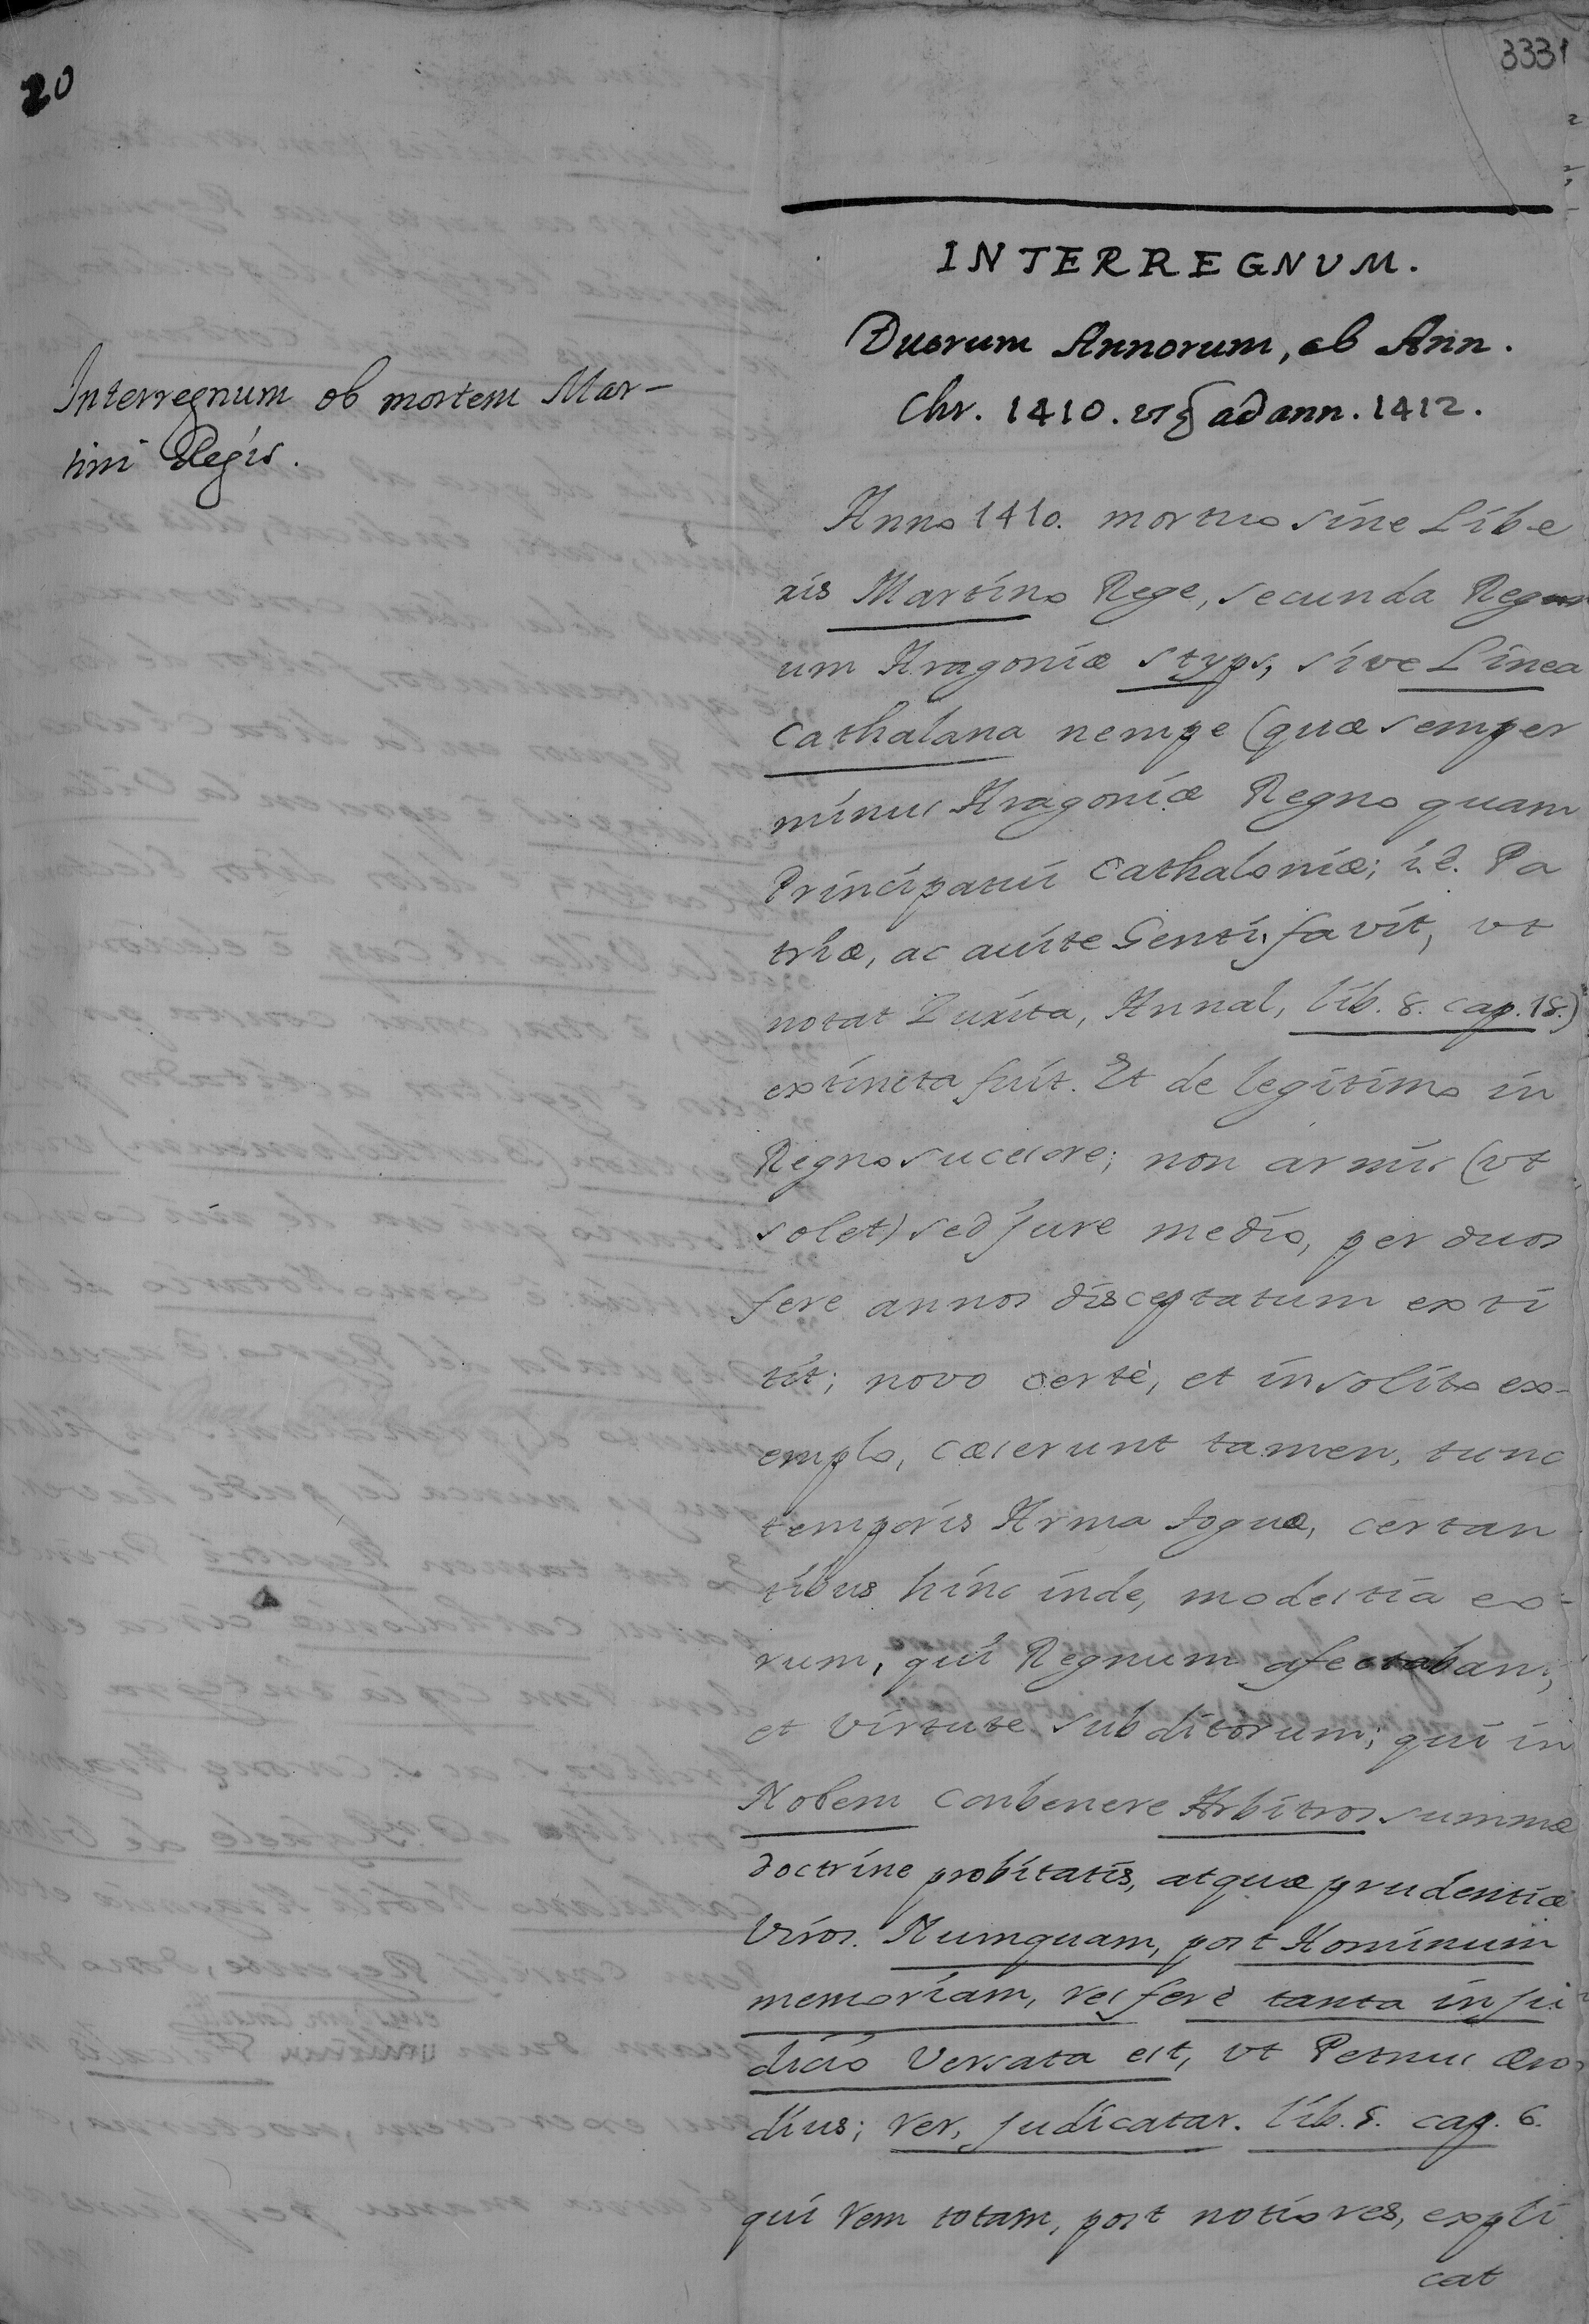 20
3331
INTERREGNUM.
Duorum Annorum, ab Ann.
Chr. 1410. usq ad ann. 1412.
Interregnum ob mortem Mar-
tini Regis.
Anno 1410. mortuo sine Libe
ris Martino Rege, secunda Reg
um Aragoniæ styps, sive Linea
Cathalana nempe (quæ semper
minus Aragoniæ Regno quam
Principatui Cathaloniæ; i.e. Pa
triæ, ac avite Genti, favit, vt
notat Zurita, Annal, lib. 8. cap. 18.)
extincta fuit. Et de legitimo in
Regno sucesore; non armis (vt
solet) sed jure medio, per duos
fere annos disceptatum exti
tit; novo certè, et insolito ex-
emplo, cæserunt tamen, tunc
temporis Arma toguæ, certan
tibus hinc inde, modestia eo-
rum, qui Regnum afectaban,
et virtute subditorum; qui in
Nobem conbenere Arbitros summæ
doctrine probitatis, atquæ prudentiæ
Viros. Numquam, post Hominum
memoriam, res ferè tanta in ju
dicio Versata est, vt Petrus Æro
dius; rer, judicatar. lib. 8. cap. 6.
qui rem totam, post notiores, expli
cat